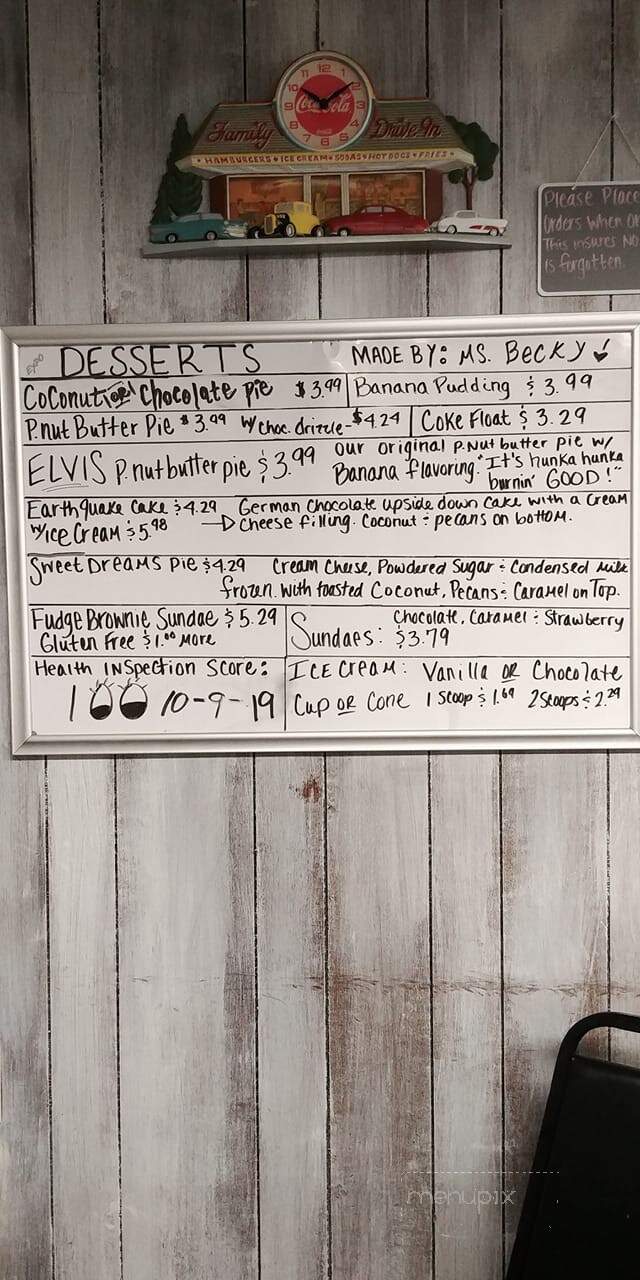 12
Coca-Cola
Family Drive-In
HAMBURGERS ★ ICE CREAM ★ SODAS ★ HOT DOGS ★ FRIES
Please Place
Orders When
This insures NO
is forgotten.
DESSERTS MADE BY: MS. BECKY
Coconut or Chocolate Pie $3.99 Banana Pudding $3.99
P.nut Butter Pie $3.99 w/choc. drizzle - $4.24 Coke Float $3.29
ELVIS P.nut butter pie $3.99 our original P.Nut butter pie w/
Banana flavoring. "It's hunka hunka
burnin' GOOD!"
Earthquake Cake $4.29 German Chocolate upside down cake with a cream
w/ice Cream $5.98 cheese filling. Coconut & pecans on bottom.
Sweet Dreams Pie $4.29 Cream Cheese, Powdered Sugar & Condensed Milk
frozen with toasted Coconut, Pecans & Caramel on Top.
Fudge Brownie Sundae $5.29 Chocolate, Caramel & Strawberry
Gluten Free $1.00 More Sundaes: $3.79
Health Inspection Score: ICE CREAM: Vanilla OR Chocolate
100 10-9-19 Cup OR Cone 1 Scoop $1.69 2 Scoops $2.29
menupix